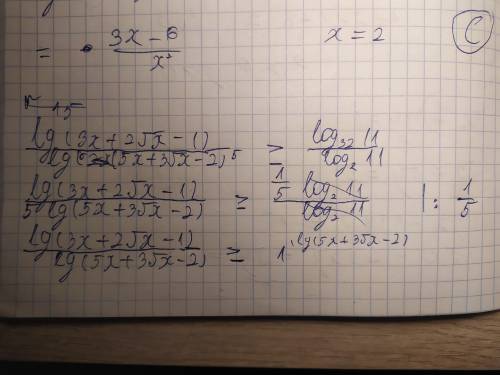 = • (3x - 6)/x² x = 2 C
№ 15
lg(3x + 2√x - 1)/lg(5x + 3√x - 2)⁵ ≥ log₃₂ 11/log₂ 11
lg(3x + 2√x - 1)/5 lg(5x + 3√x - 2) ≥ 1/5 log₂ 11/log₂ 11 | : 1/5
lg(3x + 2√x - 1)/lg(5x + 3√x - 2) ≥ 1 lg(5x + 3√x - 2)